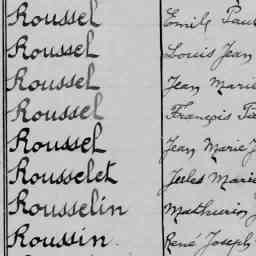 Roussel Emile Paul
Roussel Louis Jean
Roussel Jean Marie
Roussel François
Roussel Jean Marie J
Rousselet Jules Marie
Rousselin Mathurin
Roussin René Joseph